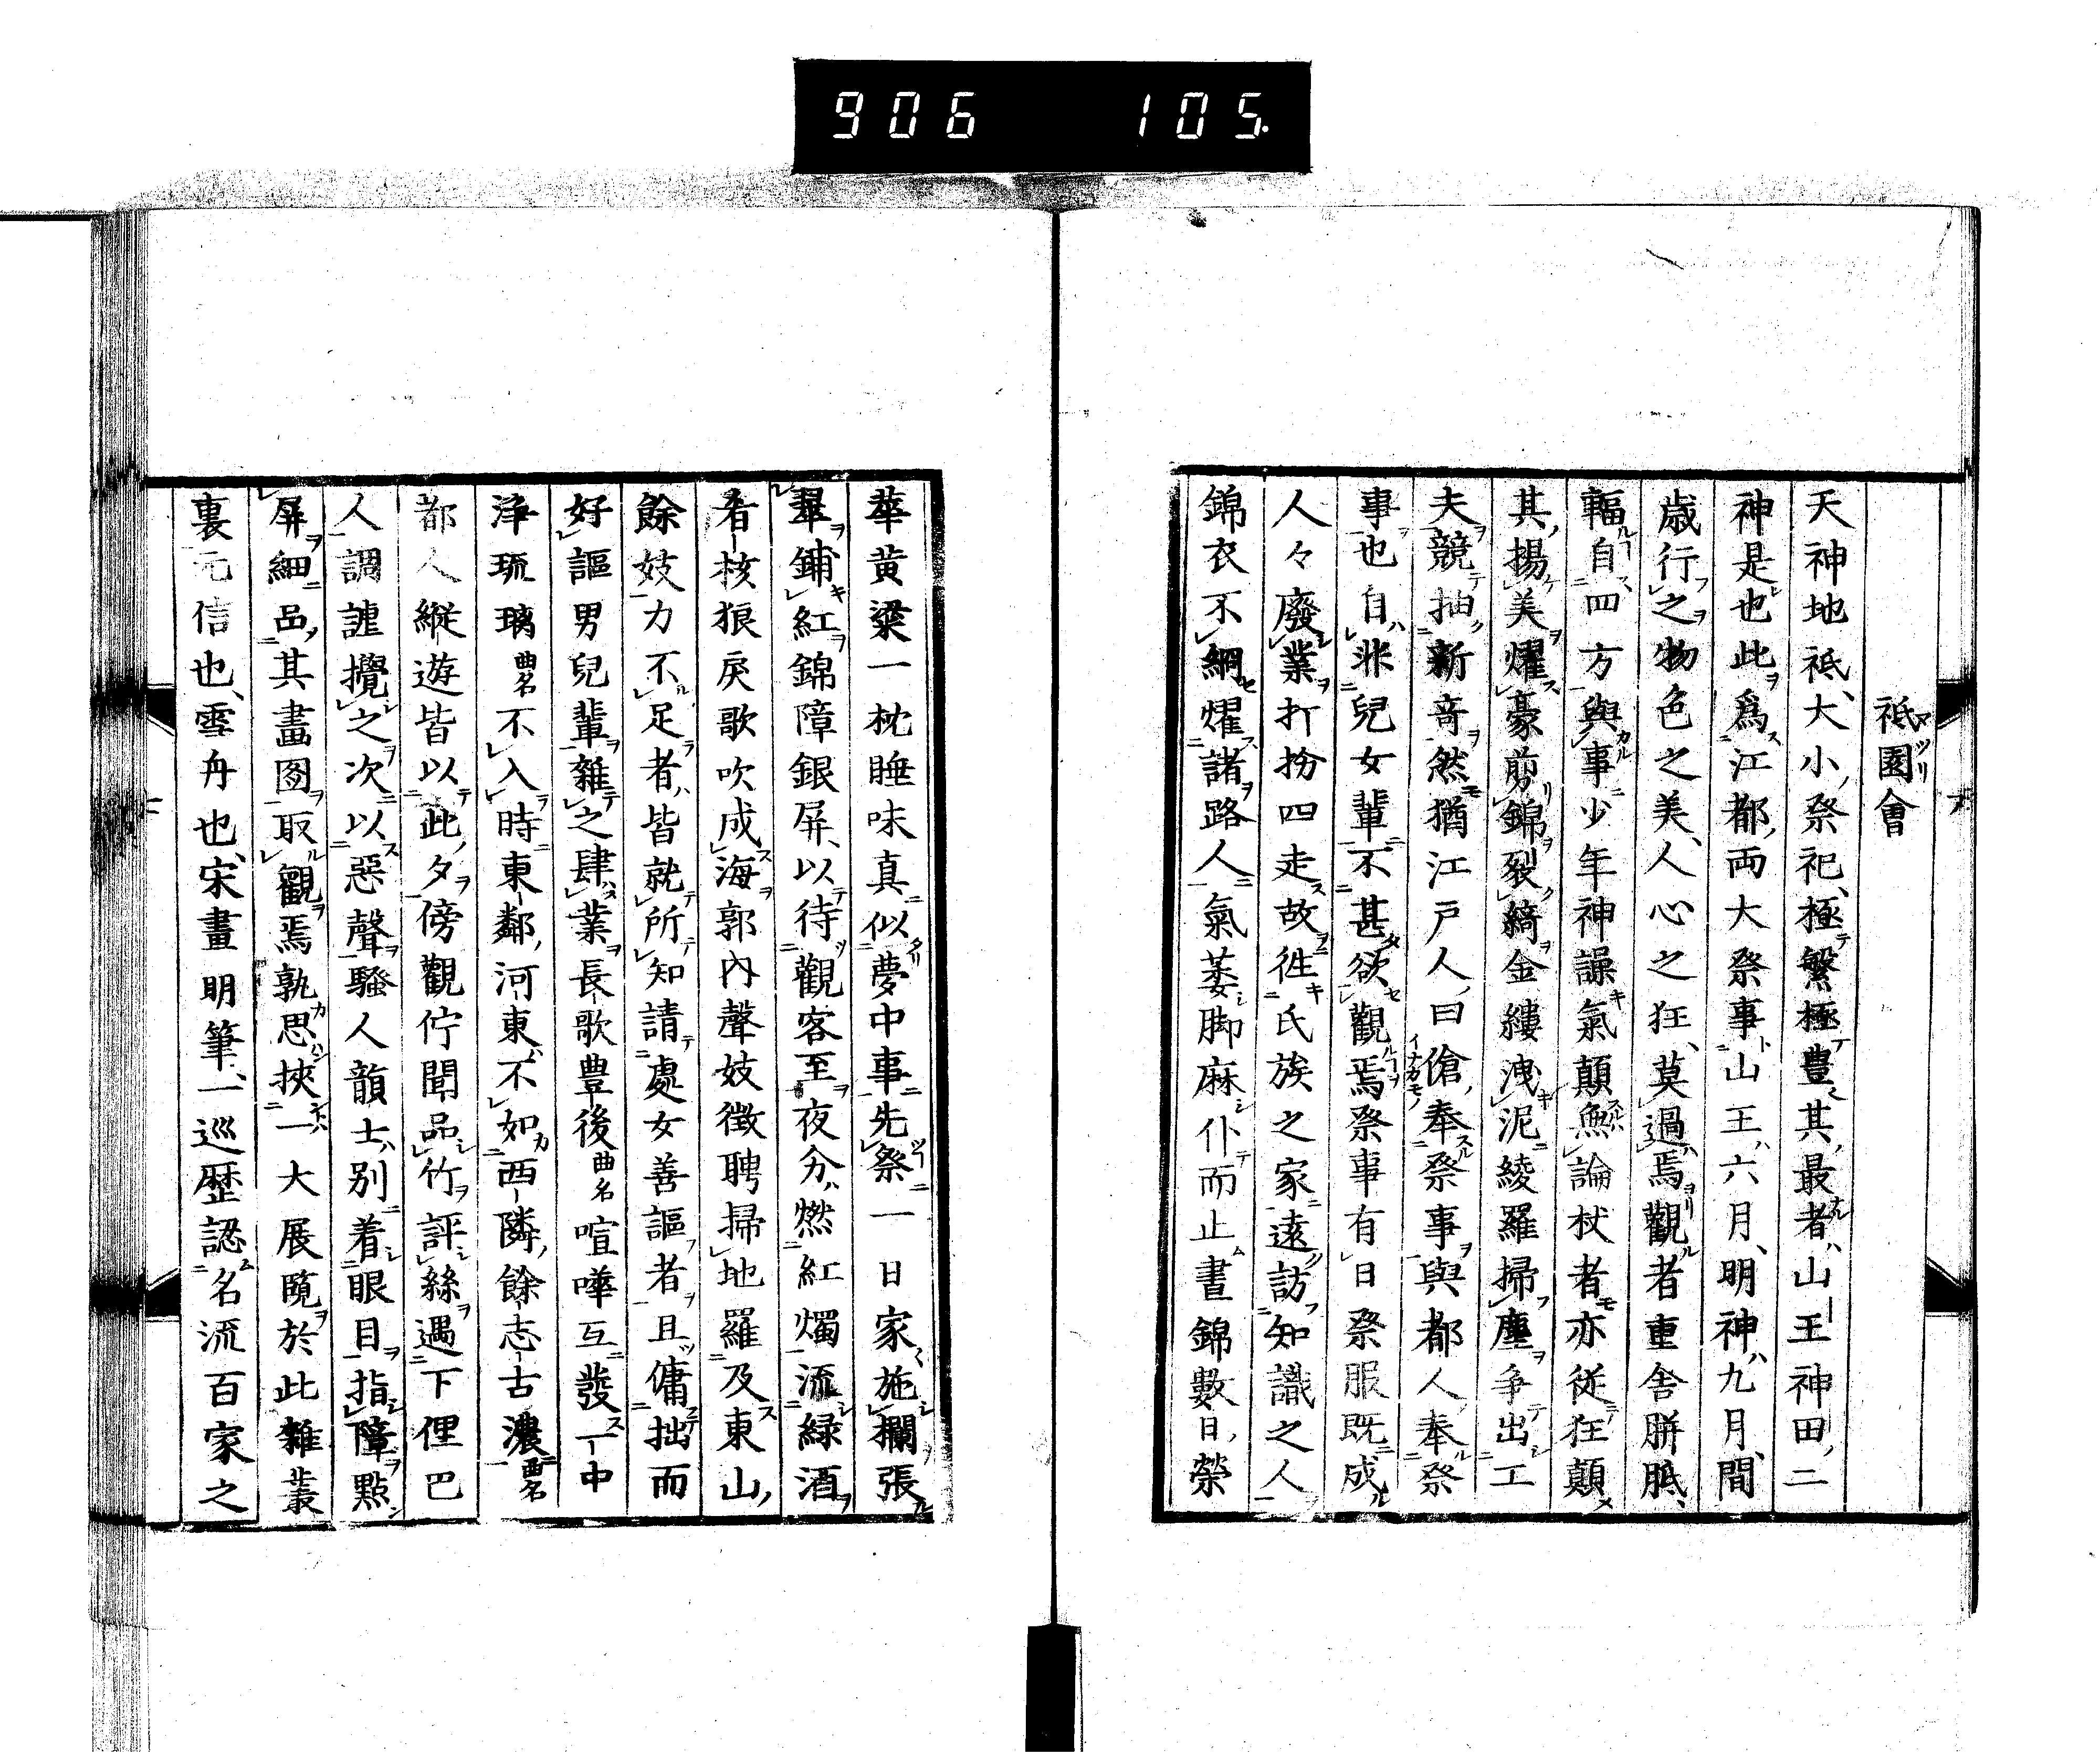 906 105.
祗園會
天神地祗、大小祭祀、極繁極豊其最者、山王神田、二
神是也此爲江都両大祭事山王六月、明神九月、間
歳行之物色之美、人心之狂、莫過焉觀者重舎胼胝、
輻自四方與事少年神譟氣顛無論杖者亦従狂顛
其揚美燿豪剪錦裂綺金縷洩泥綾羅掃塵争出工
夫競抽新竒然猶江戸人曰傖奉祭事與都人奉祭
事也自非兒女輩不甚欲觀焉祭事有日祭服既成
人々廢業打扮四走故徃氏族之家遠訪知識之人
錦衣不絅燿諸路人氣萎脚麻仆而止晝錦數日榮
華黄粱一枕睡味真似夢中事先祭一日家施欄張
翠鋪紅錦障銀屏、以待觀客至夜分燃紅燭流緑酒
肴核狼戻歌吹成海郭内聲妓徴聘掃地羅及東山
餘妓力不足者皆就所知請處女善謳者且傭拙而
好謳男兒輩雜之肆業長歌豊後曲名喧嘩互發一中
浄琉璃曲名不入時東鄰河東不如西隣餘志古濃曲名
都人縦遊皆以此夕傍觀佇聞品竹評絲遇下俚巴
人調謔攪之次以惡聲騒人韻士別着眼目指障點
屏細品其畵図取觀焉孰思挾一大展覧於此雜叢
裏元信也、雪舟也、宋畫明筆、一巡歴認名流百家之